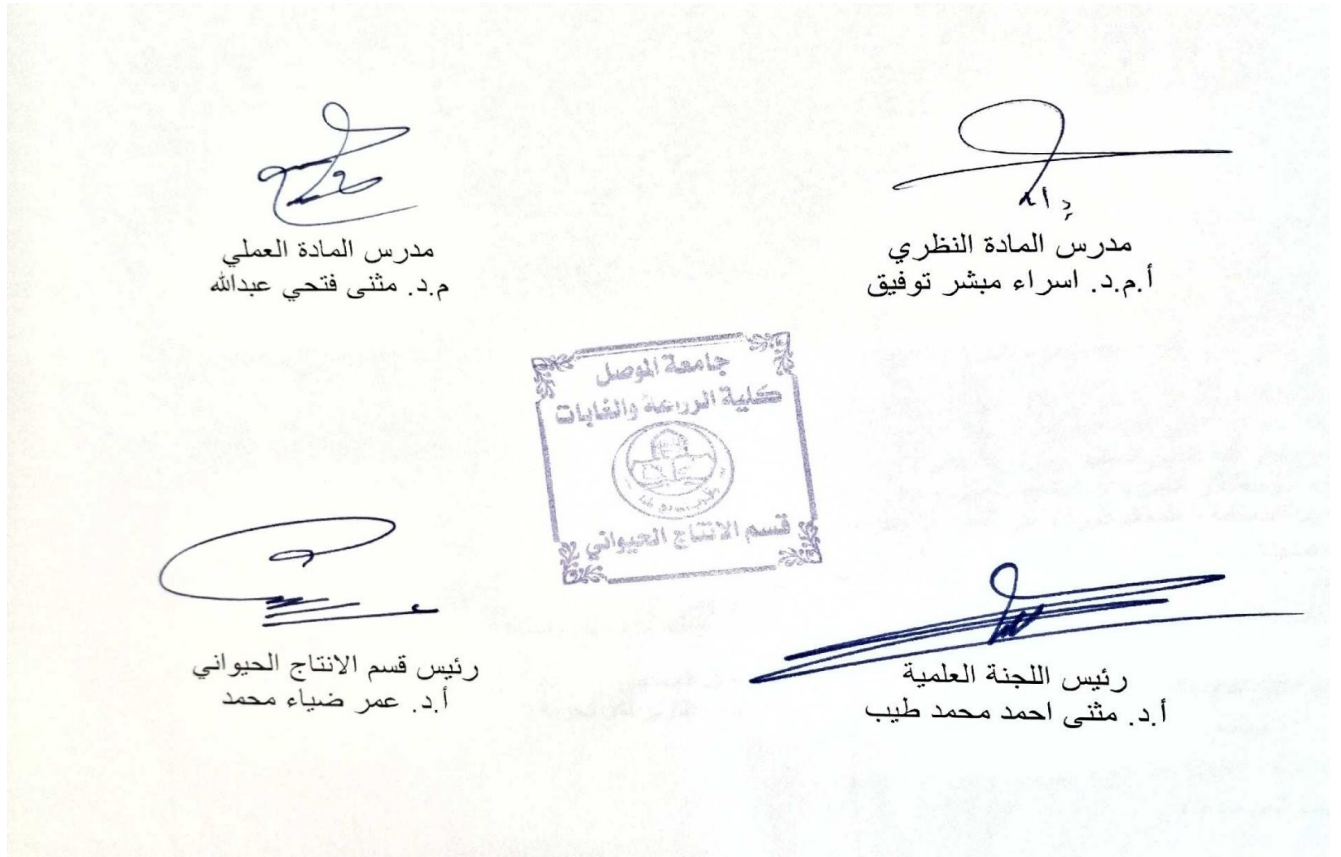 مدرس المادة النظري
أ.م.د. اسراء مبشر توفيق
مدرس المادة العملي
م.د. مثنى فتحي عبدالله
جامعة الموصل
كلية الزراعة والغابات
قسم الانتاج الحيواني
رئيس اللجنة العلمية
أ.د. مثنى احمد محمد طيب
رئيس قسم الانتاج الحيواني
أ.د. عمر ضياء محمد